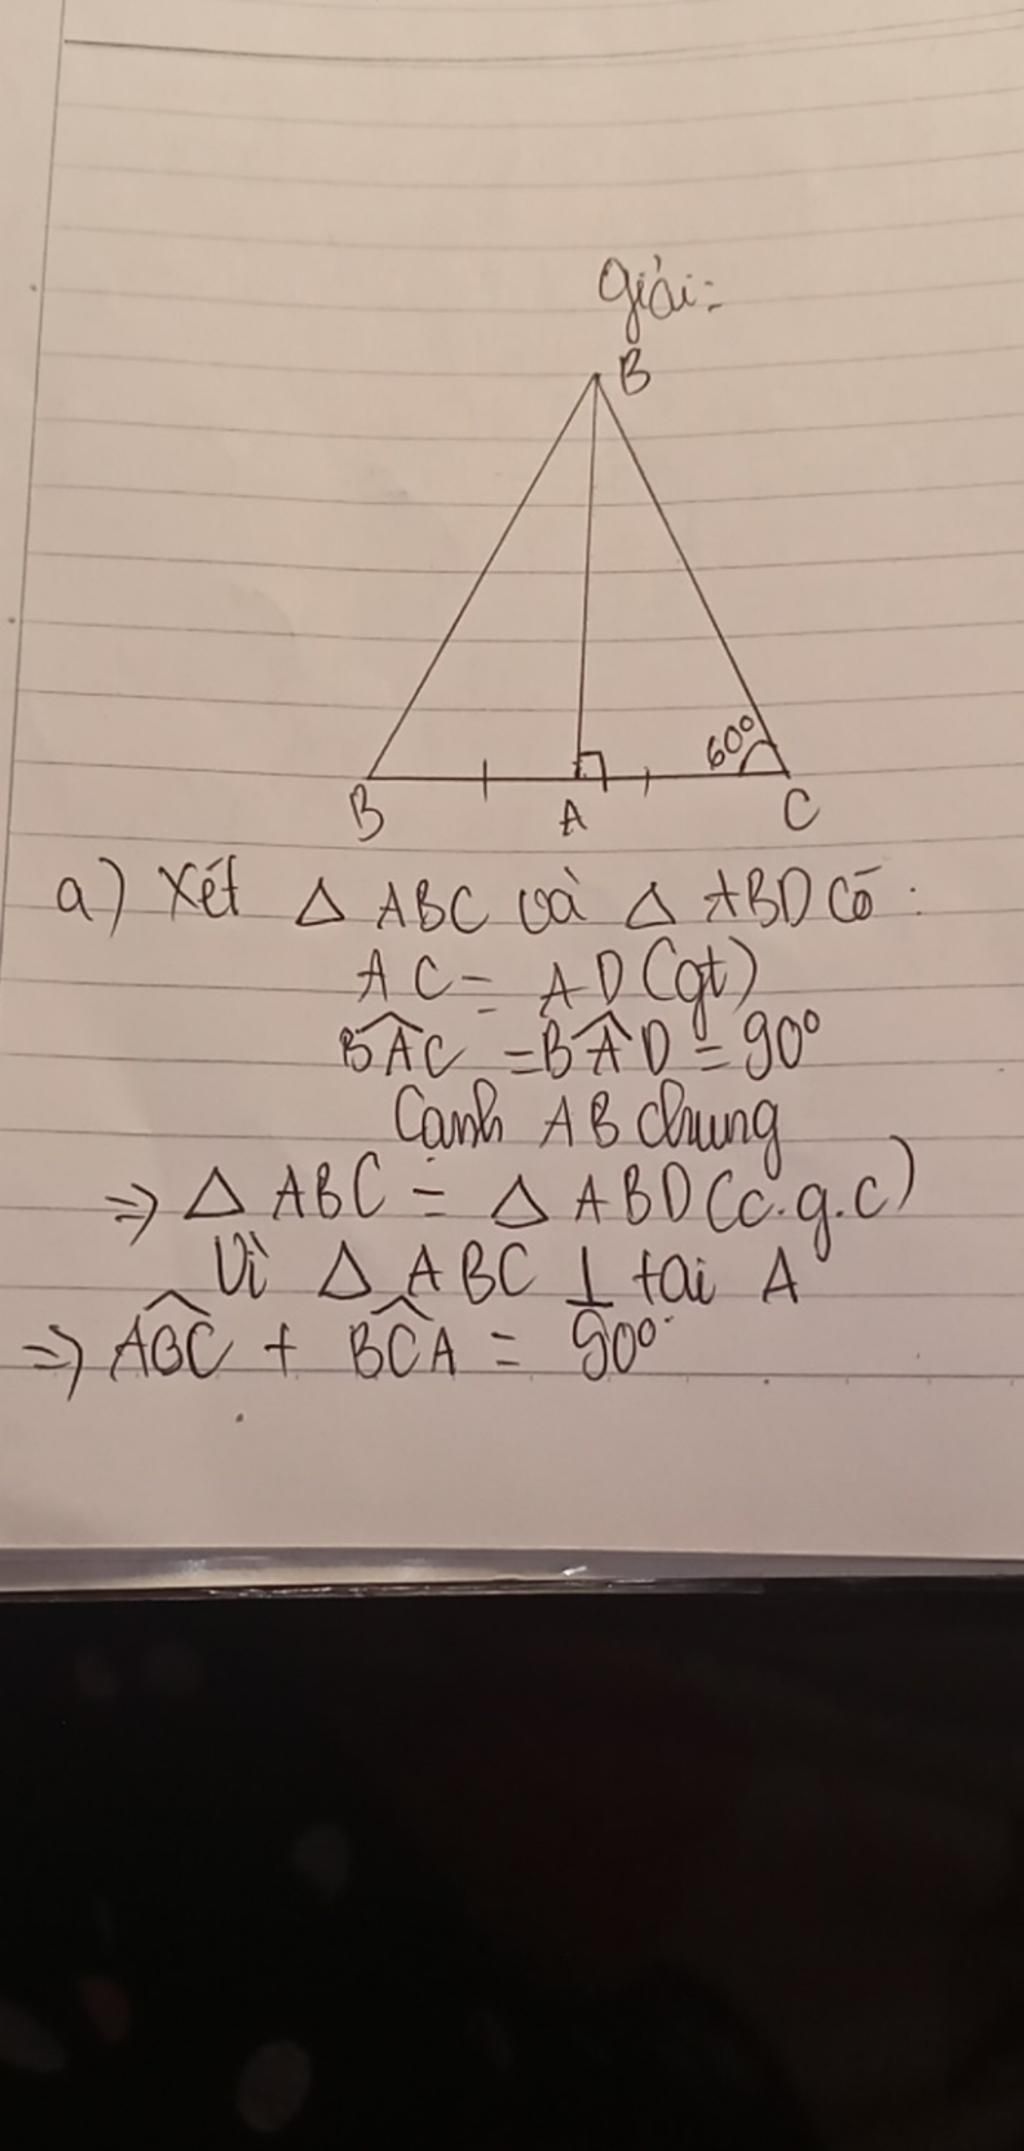 Giải:
B
60°
B A C
a) Xét △ ABC và △ ABD có :
AC = AD (gt)
BÂC = BÂD = 90°
Cạnh AB chung
=> △ ABC = △ ABD (c.g.c)
Vì △ ABC ⊥ tại A
=> AB̂C + BĈA = 90°